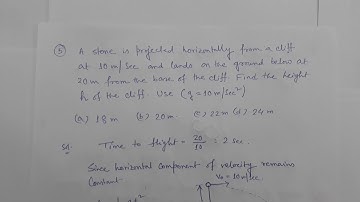 ⑤ A stone is projected horizontally from a cliff
at 10 m/sec and lands on the ground below at
20 m from the base of the cliff. Find the height
h of the cliff. Use (g = 10 m/sec²)
(a) 18 m (b) 20 m. (c) 22 m (d) 24 m
Sol. Time to flight = 20/10 = 2 sec.
Since horizontal component of velocity remains
Constant.
V₀ = 10 m/sec